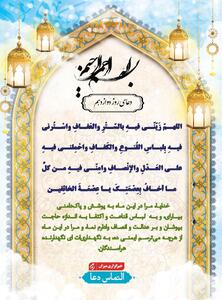 بسم الله الرحمن الرحیم
دعای روز دوازدهم
اللهمّ زَیّنّی فیهِ بالسّتْرِ والعَفافِ واسْتُرنی
فیهِ بِلباسِ القُنوعِ والکَفافِ واحْمِلنی فیهِ
علی العَدْلِ والإنْصافِ وامِنّی فیهِ من کلِّ
ما أخافُ بِعِصْمَتِکَ یا عِصْمَةَ الخائِفین
خدایا مرا در این ماه به پوشش و پاکدامنی
بیارای و به لباس قناعت و اکتفا به اندازه حاجت
بپوشان و بر عدالت و انصاف وادارم نما و مرا در این ماه
از هرچه می‌ترسم ایمنی ده، به نگهداریات ای نگهدارنده
هراسندگان
خبرگزاری میزان
التماس دعا